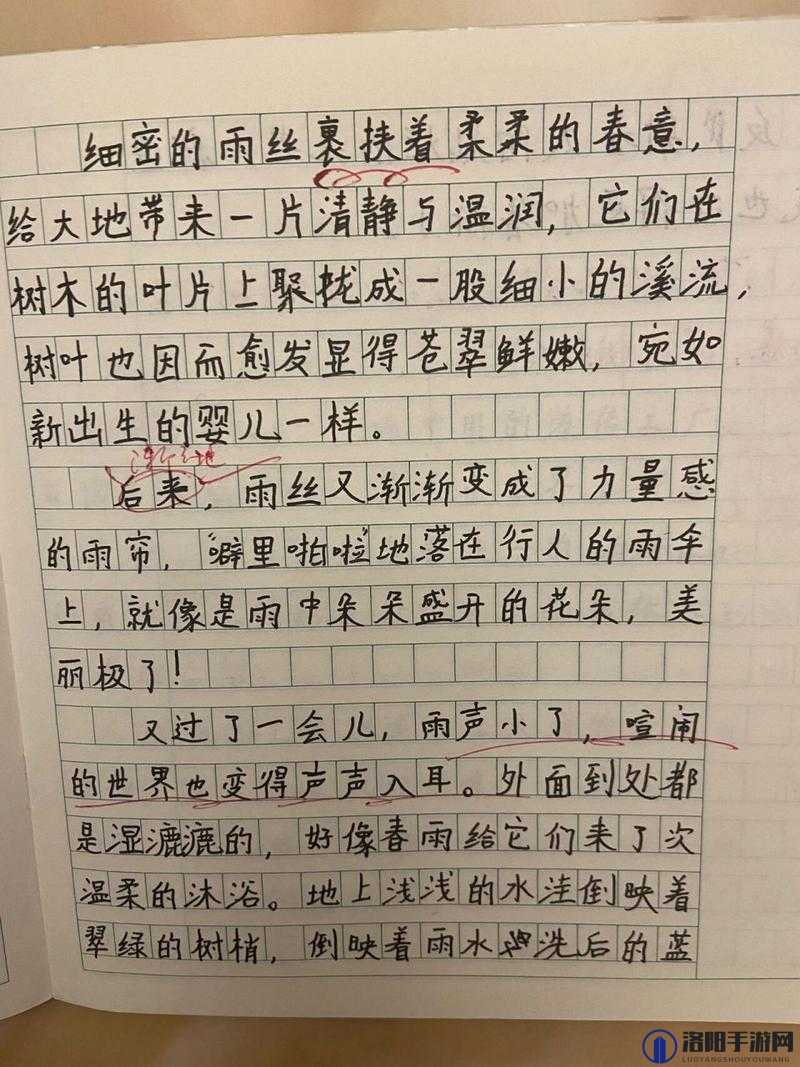 细密的雨丝裹扶着柔柔的春意，
给大地带来一片清静与温润，它们在
树木的叶片上聚拢成一股细小的溪流，
树叶也因而愈发显得苍翠鲜嫩，宛如
新出生的婴儿一样。
渐渐地
后来，雨丝又渐渐变成了力量感
的雨帘，“噼里啪啦”地落在行人的雨伞
上，就像是雨中朵朵盛开的花朵，美
丽极了！
又过了一会儿，雨声小了，喧闹
的世界也变得声声入耳。外面到处都
是湿漉漉的，好像春雨给它们来了次
温柔的沐浴。地上浅浅的水洼倒映着
翠绿的树梢，倒映着雨水洗后的蓝
洛阳手游网
LUOYANGSHOUYOUWANG